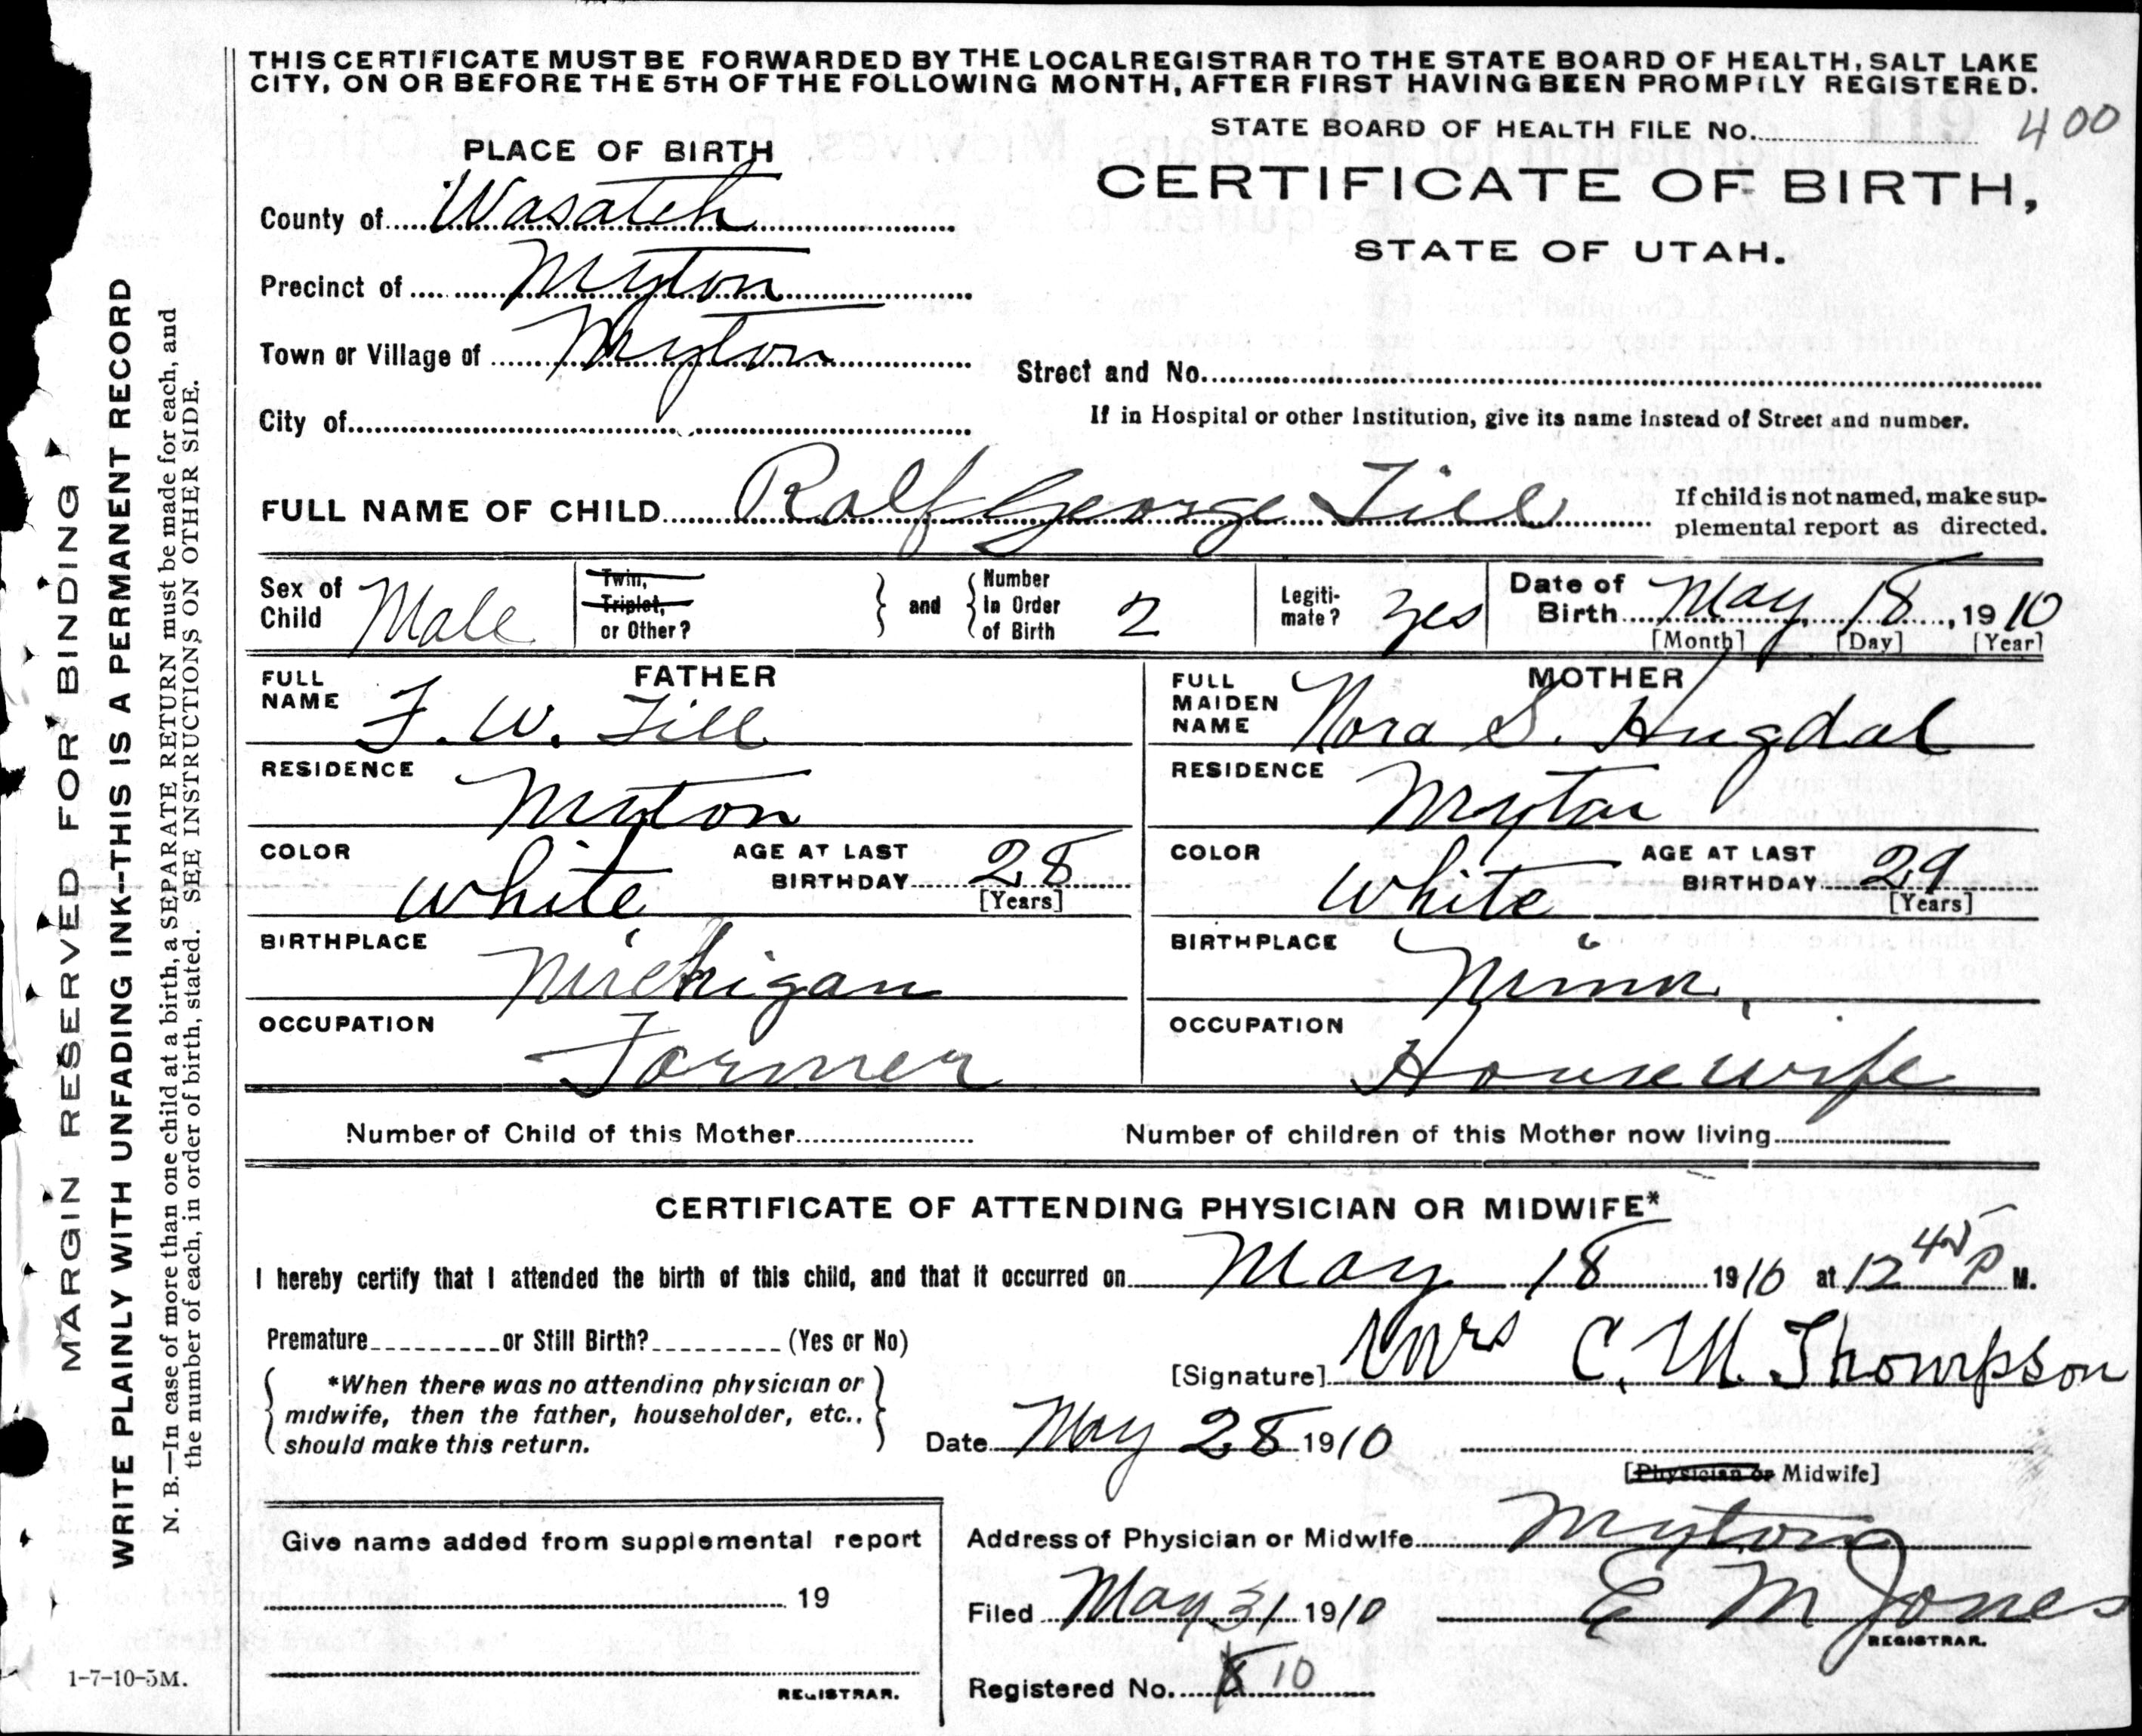 THIS CERTIFICATE MUST BE FORWARDED BY THE LOCAL REGISTRAR TO THE STATE BOARD OF HEALTH, SALT LAKE
CITY, ON OR BEFORE THE 5TH OF THE FOLLOWING MONTH, AFTER FIRST HAVING BEEN PROMPTLY REGISTERED.
STATE BOARD OF HEALTH FILE No. 400
PLACE OF BIRTH
CERTIFICATE OF BIRTH,
STATE OF UTAH.
County of Wasatch
Precinct of Myton
Town or Village of Myton
Street and No.
City of
If in Hospital or other Institution, give its name instead of Street and number.
FULL NAME OF CHILD Ralf George Till
If child is not named, make sup-
plemental report as directed.
Sex of Child Male
Twin, Triplet, or Other?
and
Number In Order of Birth 2
Legiti-mate? Yes
Date of Birth May 18, 1910
[Month] [Day] [Year]
FATHER
FULL NAME F. W. Till
RESIDENCE Myton
COLOR White AGE AT LAST BIRTHDAY 28 [Years]
BIRTHPLACE Michigan
OCCUPATION Farmer
MOTHER
FULL MAIDEN NAME Nora S. Hugdal
RESIDENCE Myton
COLOR White AGE AT LAST BIRTHDAY 29 [Years]
BIRTHPLACE Minn.
OCCUPATION Housewife
Number of Child of this Mother
Number of children of this Mother now living
CERTIFICATE OF ATTENDING PHYSICIAN OR MIDWIFE*
I hereby certify that I attended the birth of this child, and that it occurred on May 18 1910 at 12 45 P M.
Premature or Still Birth? (Yes or No)
[Signature] Mrs C. M. Thompson
*When there was no attending physician or
midwife, then the father, householder, etc.,
should make this return.
Date May 28 1910
[Physician or Midwife]
Give name added from supplemental report
19
REGISTRAR.
Address of Physician or Midwife Myton
Filed May 31 1910 E M Jones
REGISTRAR.
Registered No. 8 10
MARGIN RESERVED FOR BINDING
WRITE PLAINLY WITH UNFADING INK--THIS IS A PERMANENT RECORD
N. B.—In case of more than one child at a birth, a SEPARATE RETURN must be made for each, and
the number of each, in order of birth, stated. SEE INSTRUCTIONS ON OTHER SIDE.
1-7-10-5M.